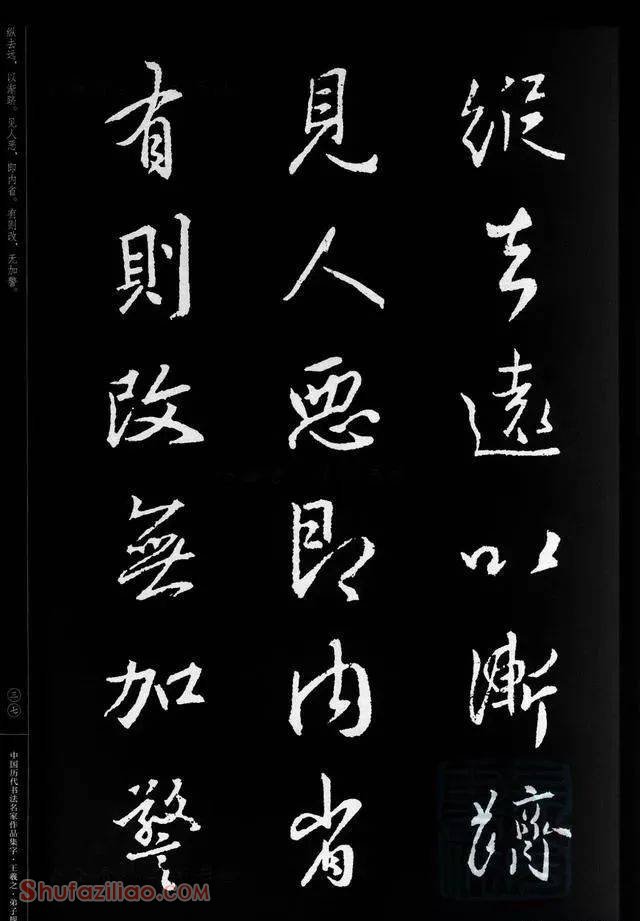 縱去遠以漸躋
見人惡即内省
有則改無加警
纵去远，以渐跻。见人恶，即内省。有则改，无加警。
三七
中国历代书法名家作品集字·王羲之·弟子规
Shufaziliao.com